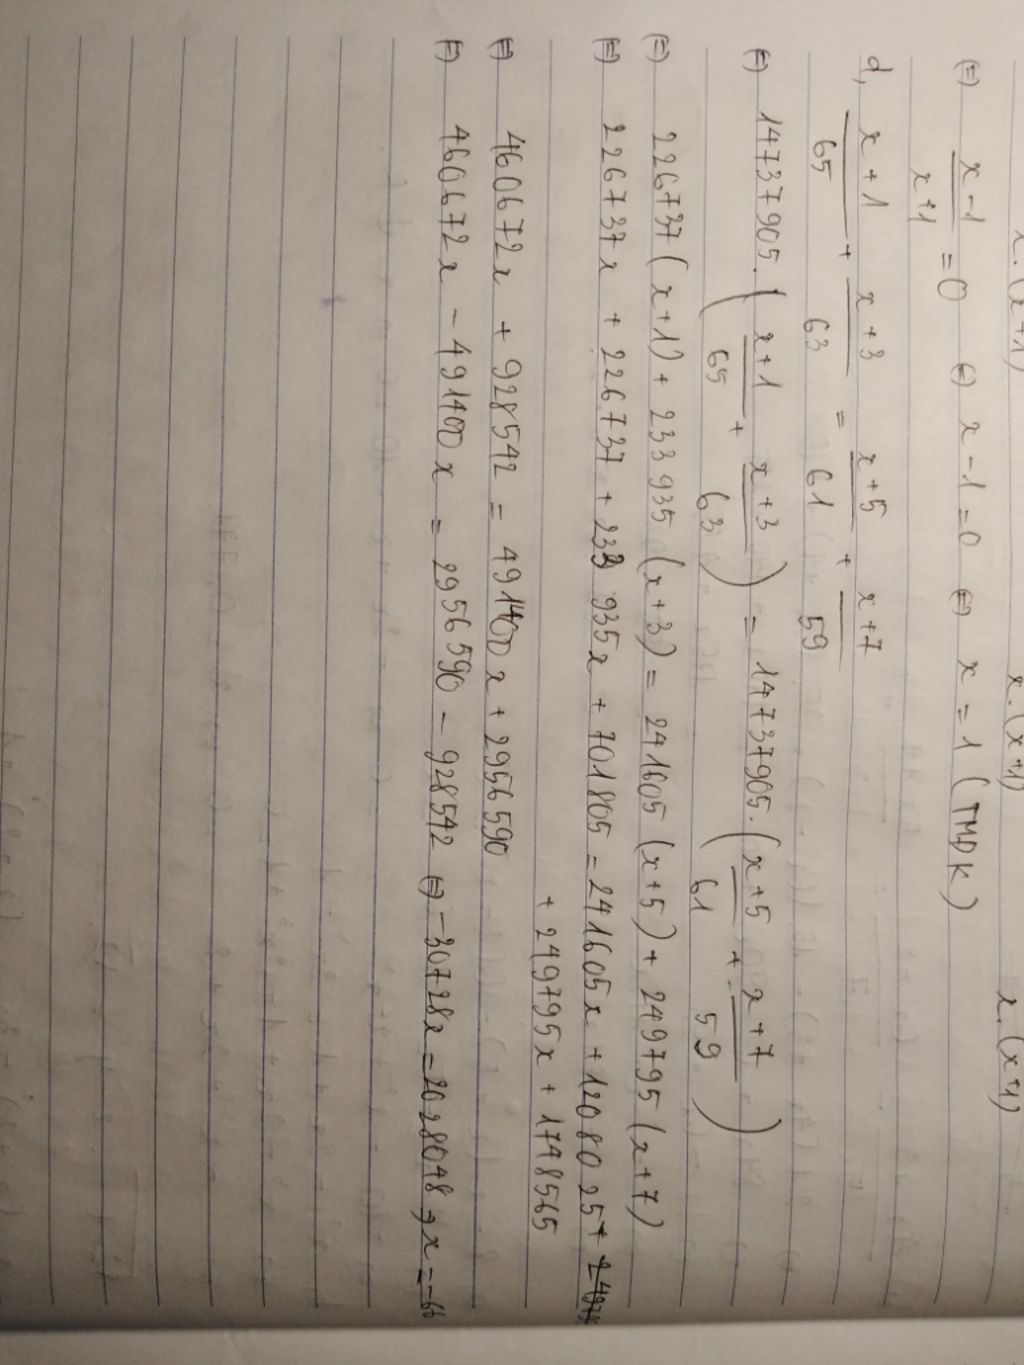 x.(x+1) x.(x+1) x.(x+1)
(=) x-1/x+1 = 0 (=) x-1=0 (=) x=1 (TMDK)
d, x+1/65 + x+3/63 = x+5/61 + x+7/59
(=) 14737905.(x+1/65 + x+3/63) = 14737905.(x+5/61 + x+7/59)
(=) 226737(x+1) + 233935(x+3) = 241605(x+5) + 249795(x+7)
(=) 226737x + 226737 + 233935x + 701805 = 241605x + 1208025 +
+ 249795x + 1748565
(=) 460672x + 928542 = 491400x + 2956590
(=) 460672x - 491400x = 2956590 - 928542 (=) -30728x = 2028048 → x = -66